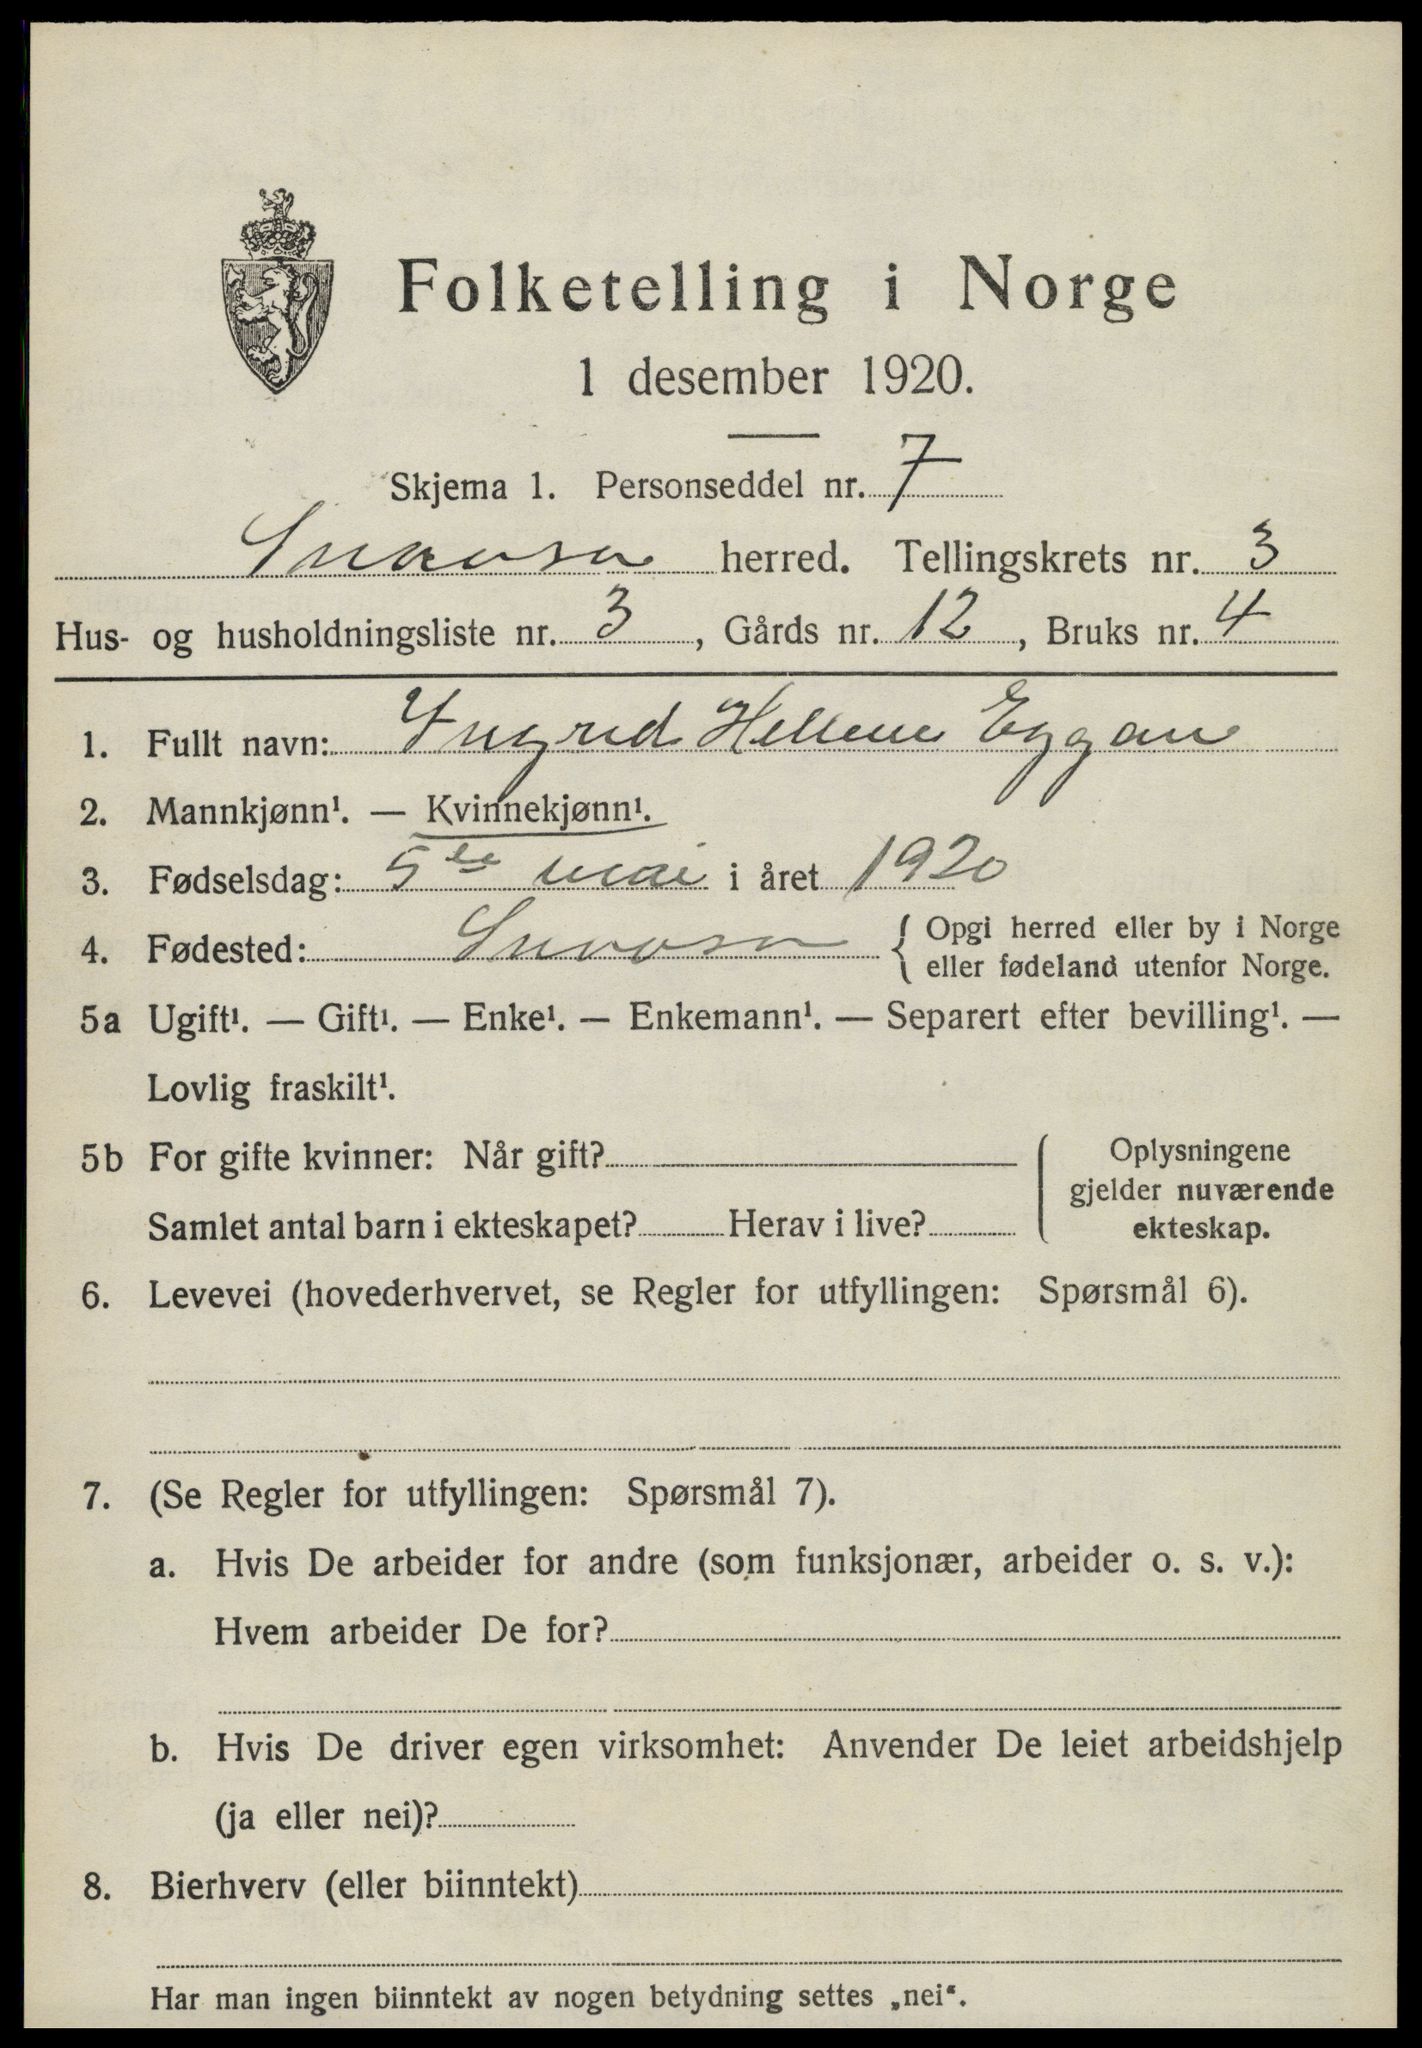 Folketelling i Norge
1 desember 1920.
Skjema 1. Personseddel nr. 7
Snaasa herred. Tellingskrets nr. 3
Hus- og husholdningsliste nr. 3, Gårds nr. 12, Bruks nr. 4
1. Fullt navn: Yngrid Hellene Eggan
2. Mannkjønn¹. — Kvinnekjønn¹.
3. Fødselsdag: 5te mai i året 1920
4. Fødested: Snaasa { Opgi herred eller by i Norge
eller fødeland utenfor Norge.
5a Ugift¹. — Gift¹. — Enke¹. — Enkemann¹. — Separert efter bevilling¹. —
Lovlig fraskilt¹.
5b For gifte kvinner: Når gift?
Samlet antal barn i ekteskapet? Herav i live?
Oplysningene
gjelder nuværende
ekteskap.
6. Levevei (hovederhvervet, se Regler for utfyllingen: Spørsmål 6).
7. (Se Regler for utfyllingen: Spørsmål 7).
a. Hvis De arbeider for andre (som funksjonær, arbeider o. s. v.):
Hvem arbeider De for?
b. Hvis De driver egen virksomhet: Anvender De leiet arbeidshjelp
(ja eller nei)?
8. Bierhverv (eller biinntekt)
Har man ingen biinntekt av nogen betydning settes „nei“.